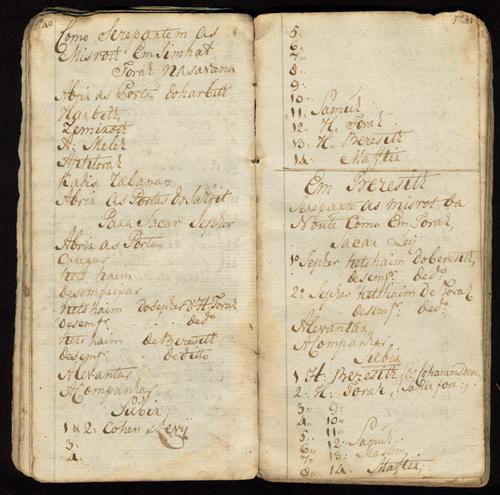 Como Serepantem as
Misrott Em Simhat
Torah Nasavana
Abrir as Portas do harbith
Harbith
Zemiroth
H. Meleh
Kadis Zabanar
Abrir as Portas do Saxrit
Para Sacar Sepher
Abrir as Portas
hets haim
desempaixar
hets haim do Sepher d'H. Torah
desemfr. .. de do
hets haim .. de Beresith
desemfr. .. de ditto
Alevantar
ACompanhar
Subir
1 & 2: Cohen Levij
3:
4.
5
6.
7.
8.
9.
10.
11. Samuh
12. H. Torah
13. H. Beresith
14. Maftir
Em Beresith
as misrot da
Noute Como Em Torah,
Sacar Ley
1o Sepher, hets haim do beresith,
desemfr. de do
2o Sepher hets haim de Torah
desemfr. de do
Alevantar
ACompanhar,
Subir
1 H. Beresith
2. H. Torah
3 9:
4 10
5 11
6 12. Samuh
7 13:
8 14: Maftir,